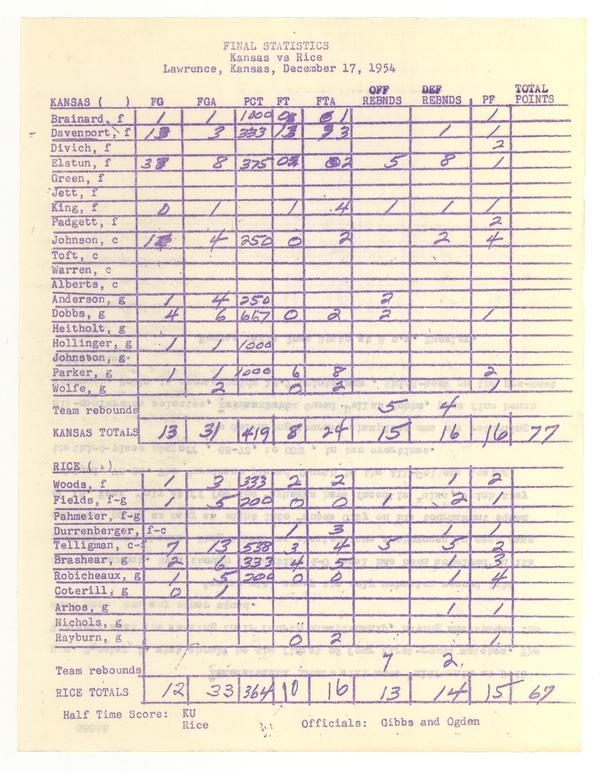 FINAL STATISTICS
Kansas vs Rice
Lawrence, Kansas, December 17, 1954
OFF DEF TOTAL
KANSAS ( ) FG FGA PCT FT FTA REBNDS REBNDS PF POINTS
Brainard, f 1 1 1000 0 1 1
Davenport, f 1 3 333 1 3 1 1
Divich, f 2
Elstun, f 3 8 375 0 2 5 8 1
Green, f
Jett, f
King, f 0 1 1 4 1 1 1
Padgett, f 2
Johnson, c 1 4 250 0 2 2 4
Toft, c
Warren, c
Alberts, c
Anderson, g 1 4 250 2
Dobbs, g 4 6 667 0 2 2 1
Heitholt, g
Hollinger, g 1 1 1000
Johnston, g
Parker, g 1 1 1000 6 8 2
Wolfe, g 2 0 2 1
Team rebounds 5 4
KANSAS TOTALS 13 31 419 8 24 15 16 16 77
RICE ( )
Woods, f 1 3 333 2 2 1 2
Fields, f-g 1 5 200 0 0 1 2 1
Pahmeier, f-g
Durrenberger, f-c 1 3 1 1
Telligman, c-f 7 13 538 3 4 5 5 2
Brashear, g 2 6 333 4 5 1 3
Robicheaux, g 1 5 200 0 0 1 4
Coterill, g 0 1
Arhos, g 1 1
Nichols, g
Rayburn, g 0 2 1
Team rebounds 7 2
RICE TOTALS 12 33 364 10 16 13 14 15 67
Half Time Score: KU
Rice Officials: Gibbs and Ogden